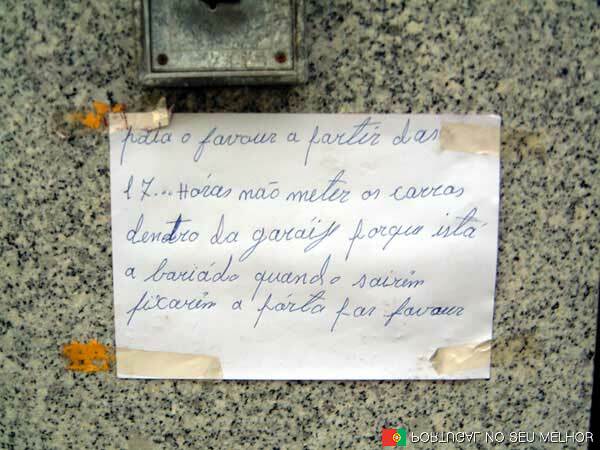 páta o favour a partir das
17... Hóras não meter os carros
dentro da garaij porque istá
a bariádo quando sairêm
fixarêm a pórta por favour
PORTUGAL NO SEU MELHOR